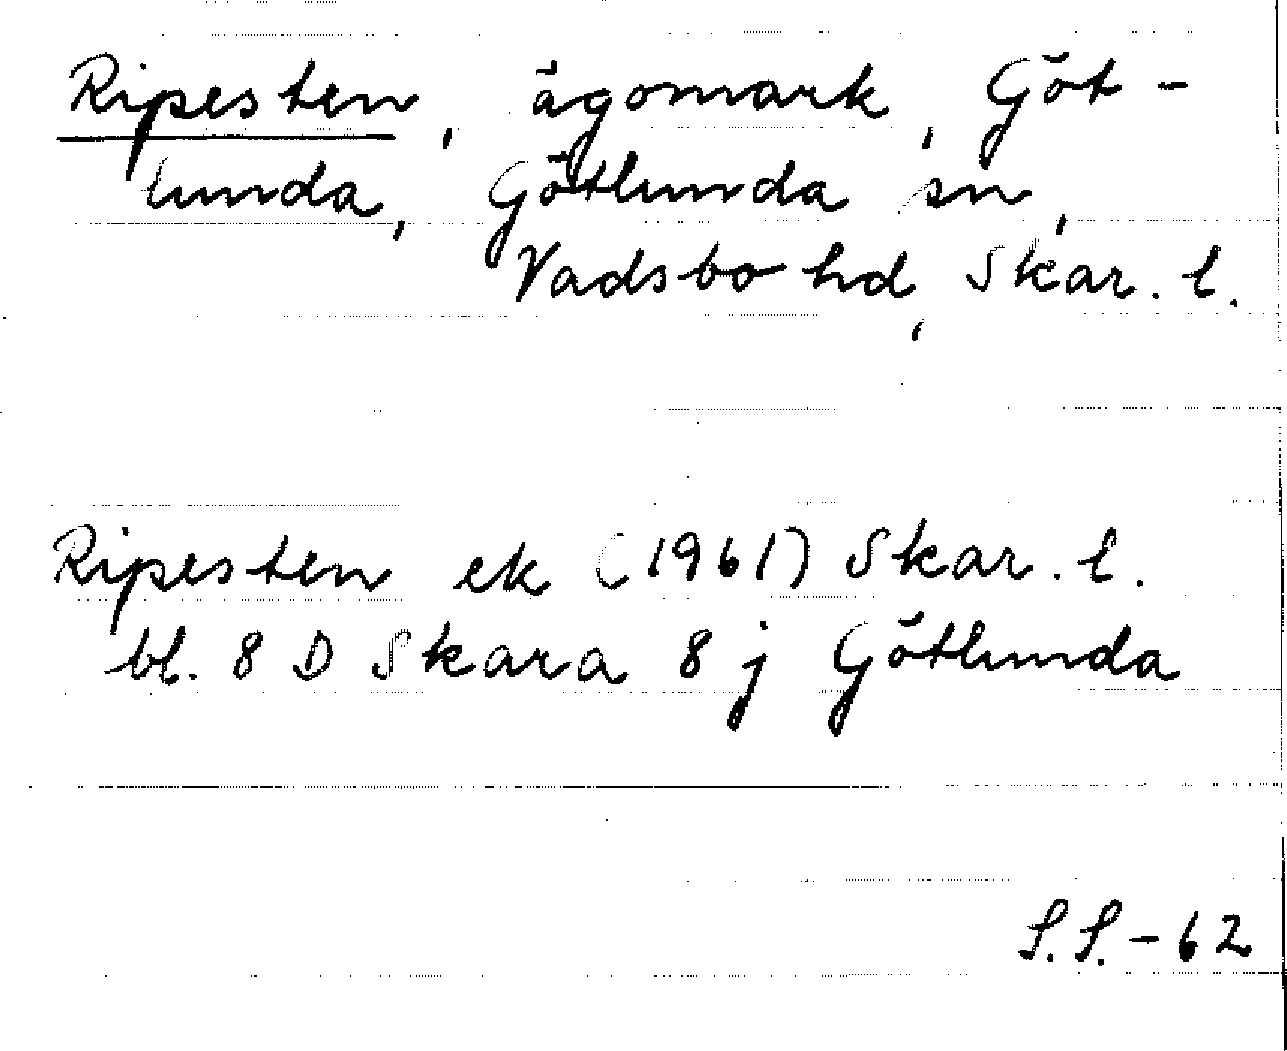 Ripesten, ägomark, Göt-
lunda, Götlunda sn,
Vadsbo hd, Skar. l.
Ripesten ek (1961) Skar. l.
bl. 8 D Skara 8 j Götlunda
S.S.-62